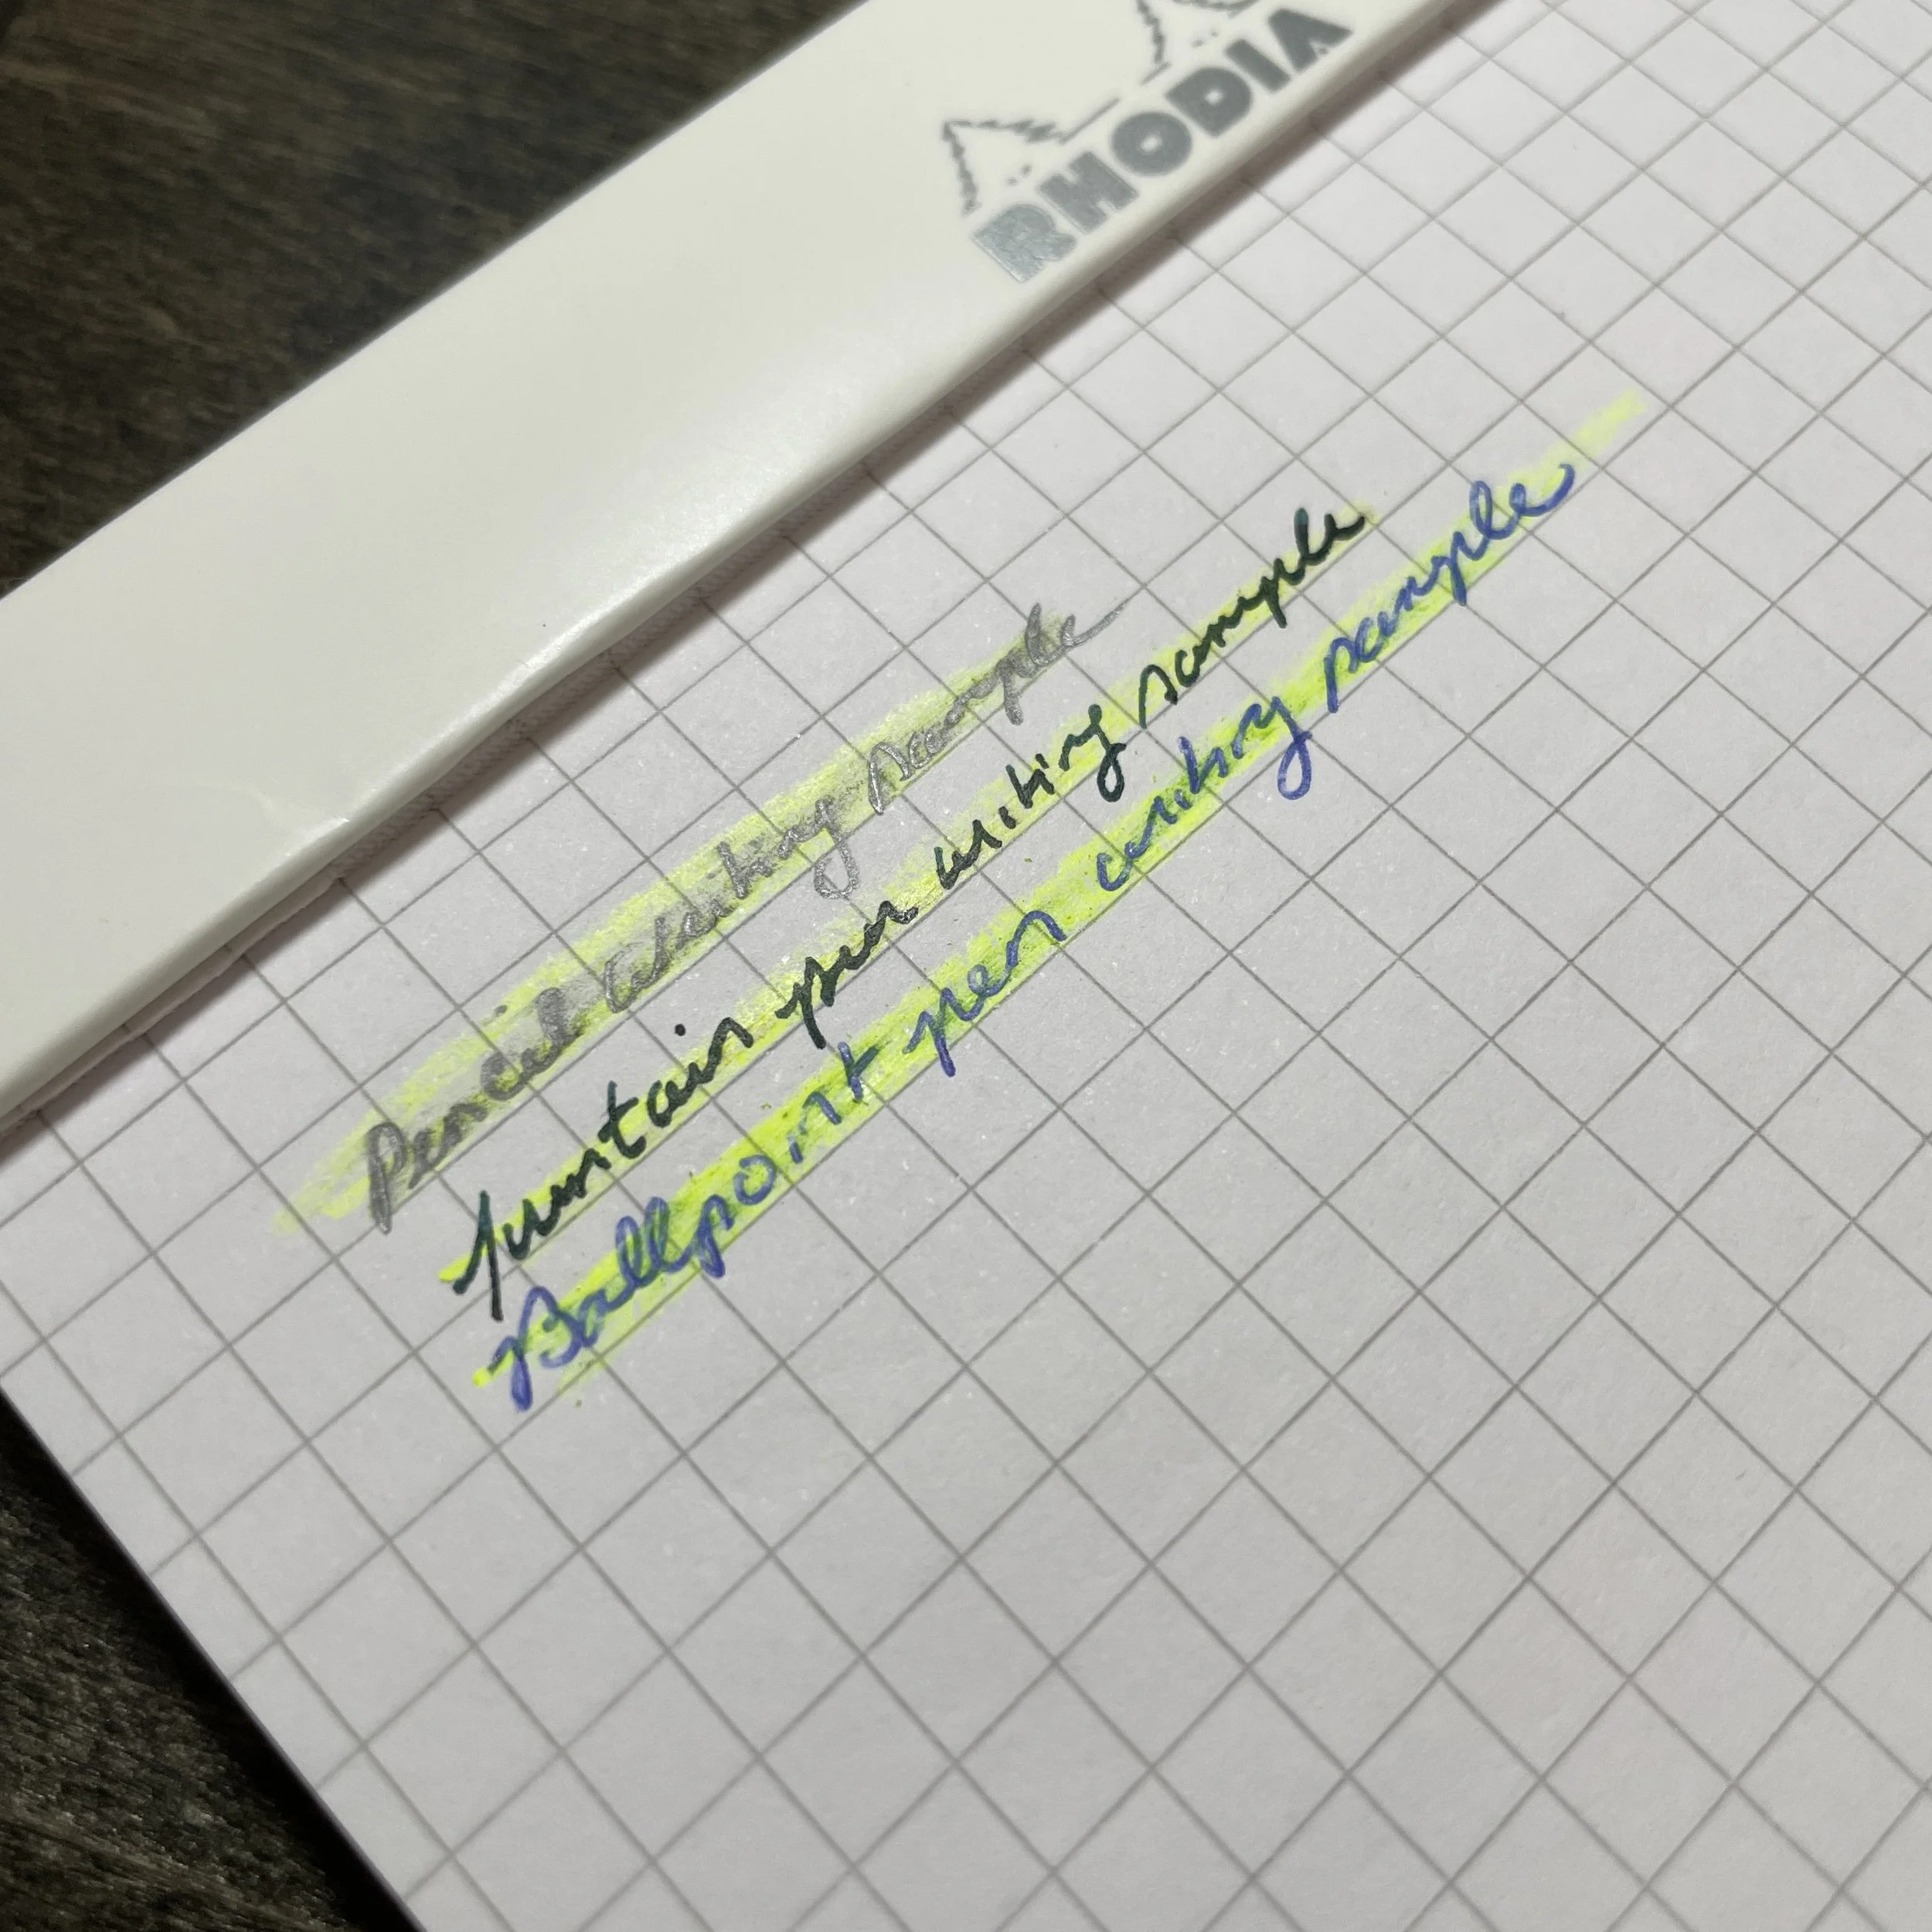 RHODIA
Pencil writing sample
fountain pen writing sample
Ballpoint pen writing sample